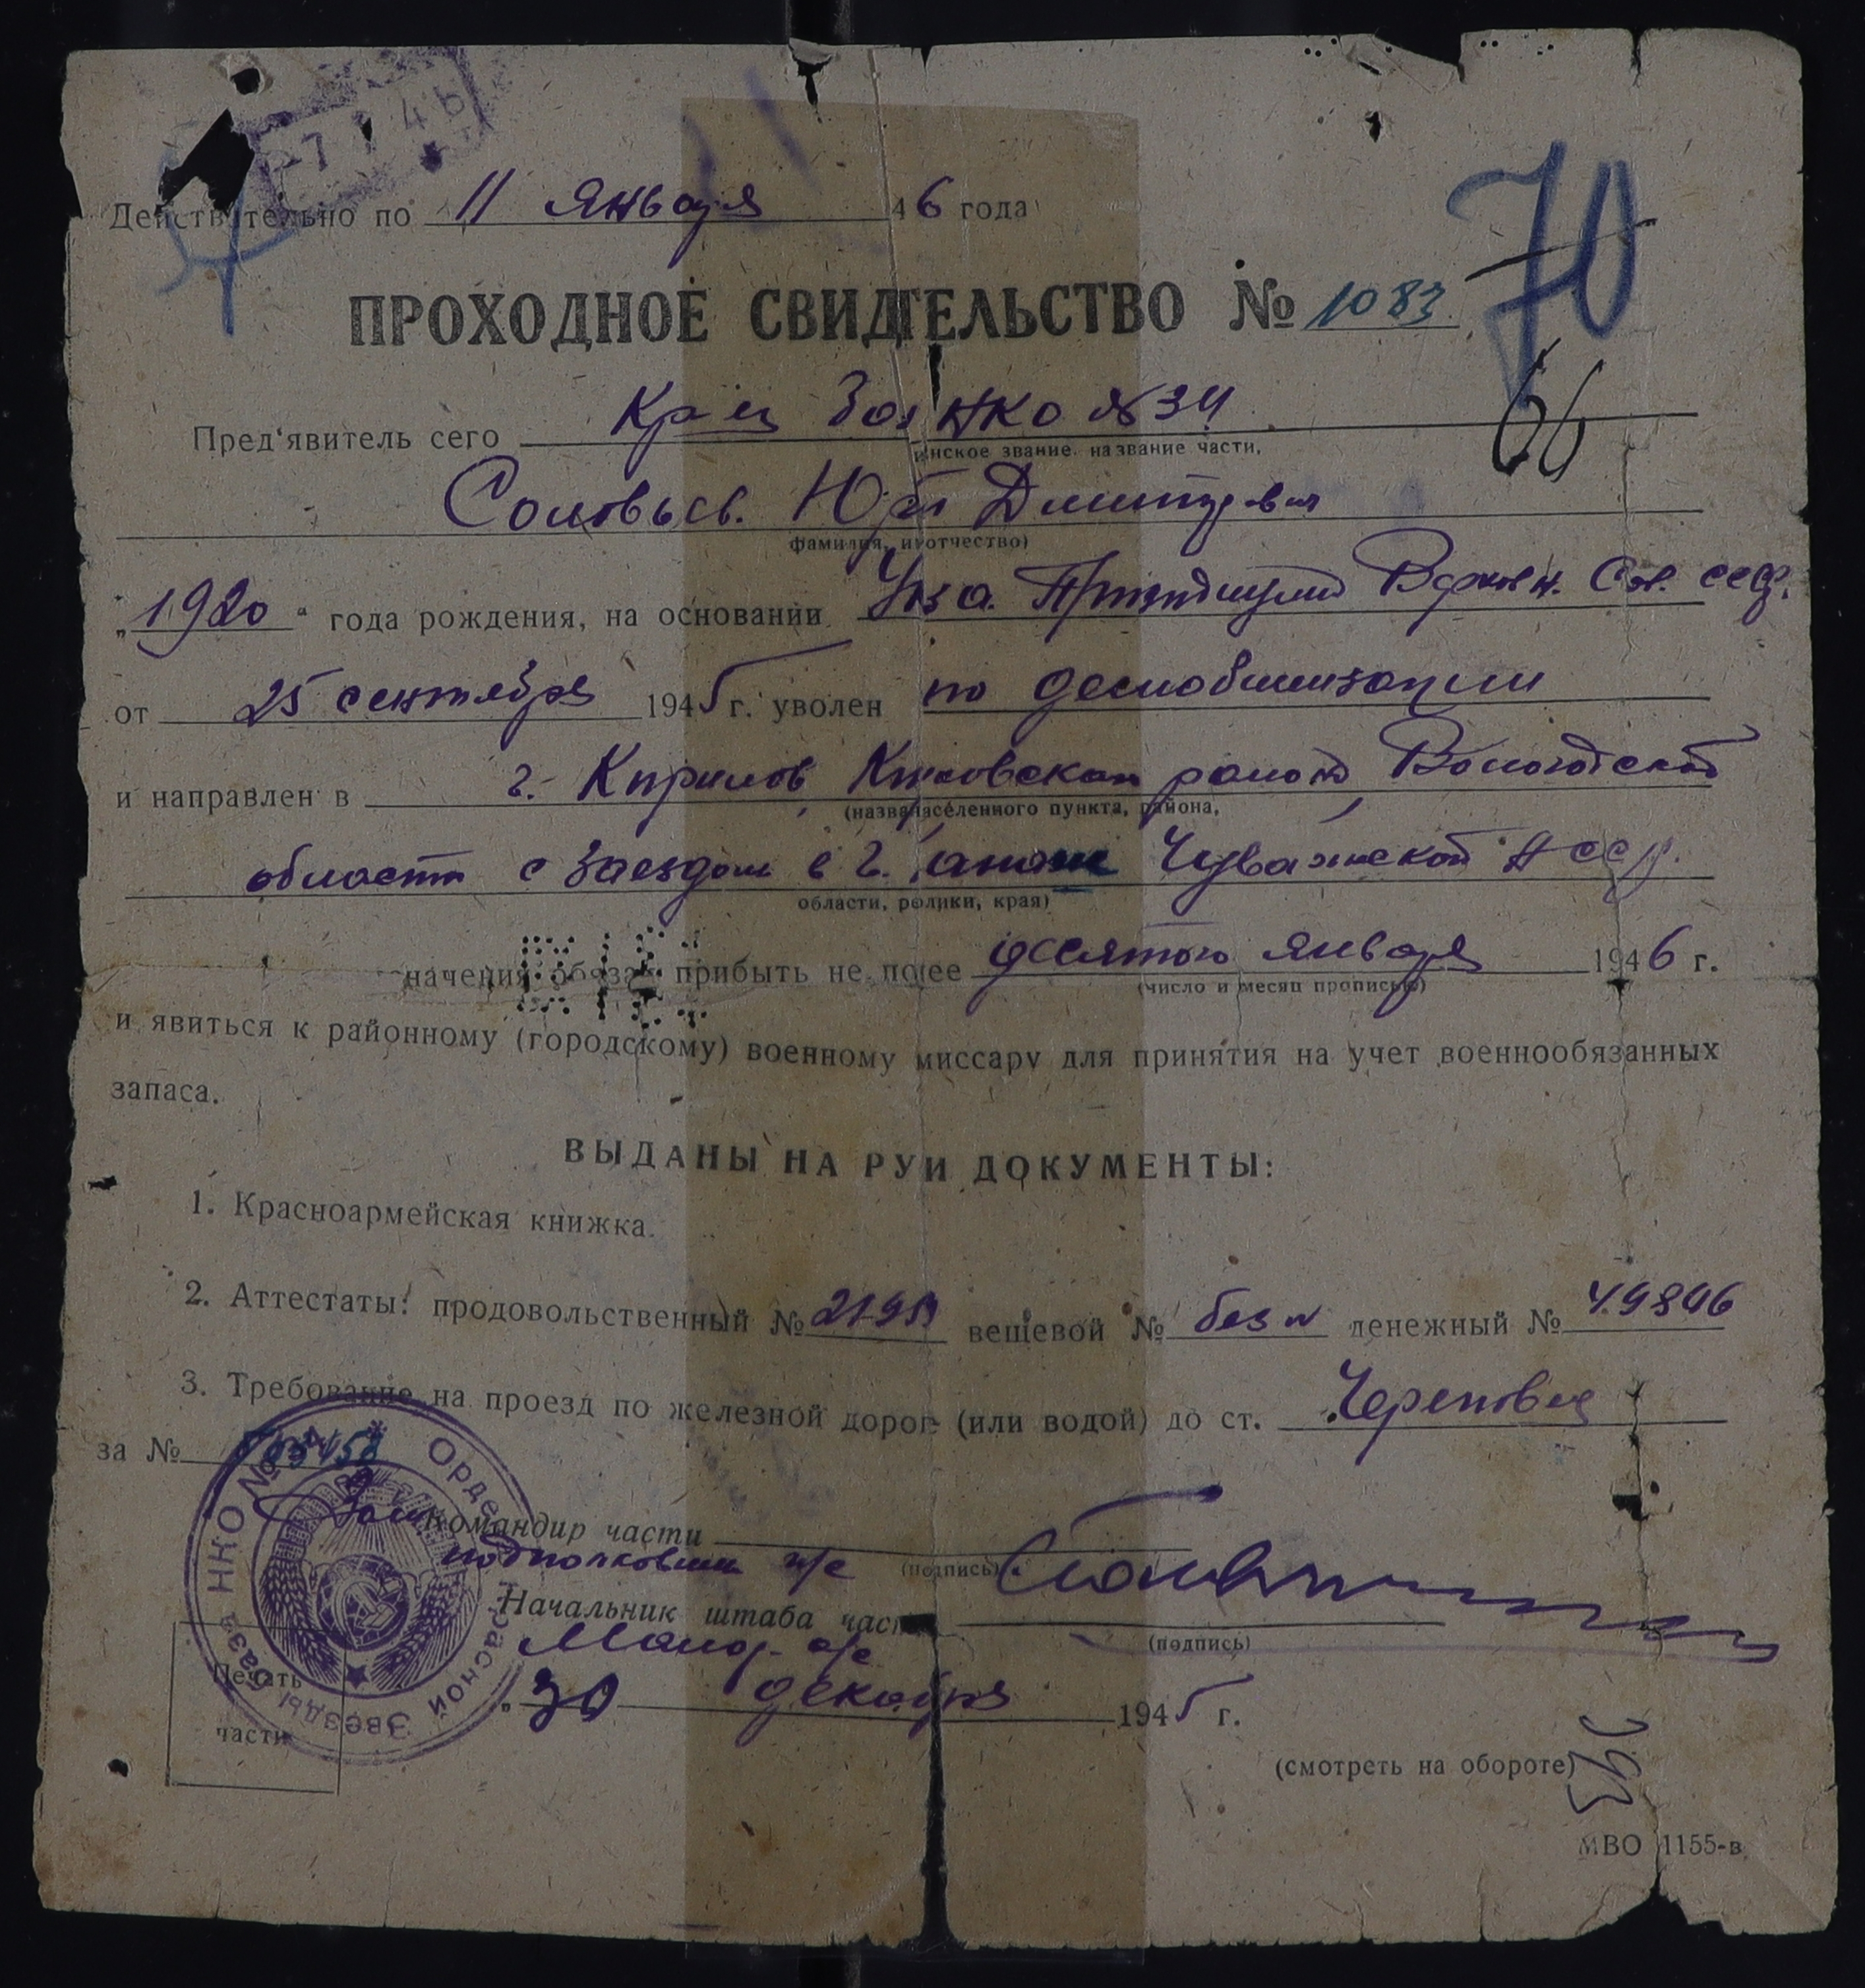 7 1 46
Действительно по 11 января 46 года
70
ПРОХОДНОЕ СВИДТЕЛЬСТВО № 1083
66
Пред'явитель сего Кр-ец НКО №34
инское звание. название части,
Соловьев. Юрий Дмитриевич
фамилия, и отчество)
„1920" года рождения, на основании Указа. Президиума Верховн. Сов. СССР.
от 25 сентября 1945 г. уволен по демобилизации
и направлен в г. Кирилов, района, Вологодской
(назва населенного пункта, района,
области с заездом в г. Чувашской АССР.
области, края)
начения обязан прибыть не по ее десятого января 1946 г.
(число и месяц прописью)
и явиться к районному (городскому) военному миссару для принятия на учет военнообязанных
запаса.
ВЫДАНЫ НА РУИ ДОКУМЕНТЫ:
1. Красноармейская книжка.
2. Аттестаты: продовольственный № вещевой № без № денежный №
3. Требование на проезд по железной дорог (или водой) до ст. Череповец
за №
Зам Командир части
подполковник и/с (подпись)
Начальник штаба час
Майор а/с (подпись)
„30 декабря 1945 г.
НКО № 34 * Орде Красной Звезды База
Печать
части
(смотреть на обороте)
МВО 1155-в